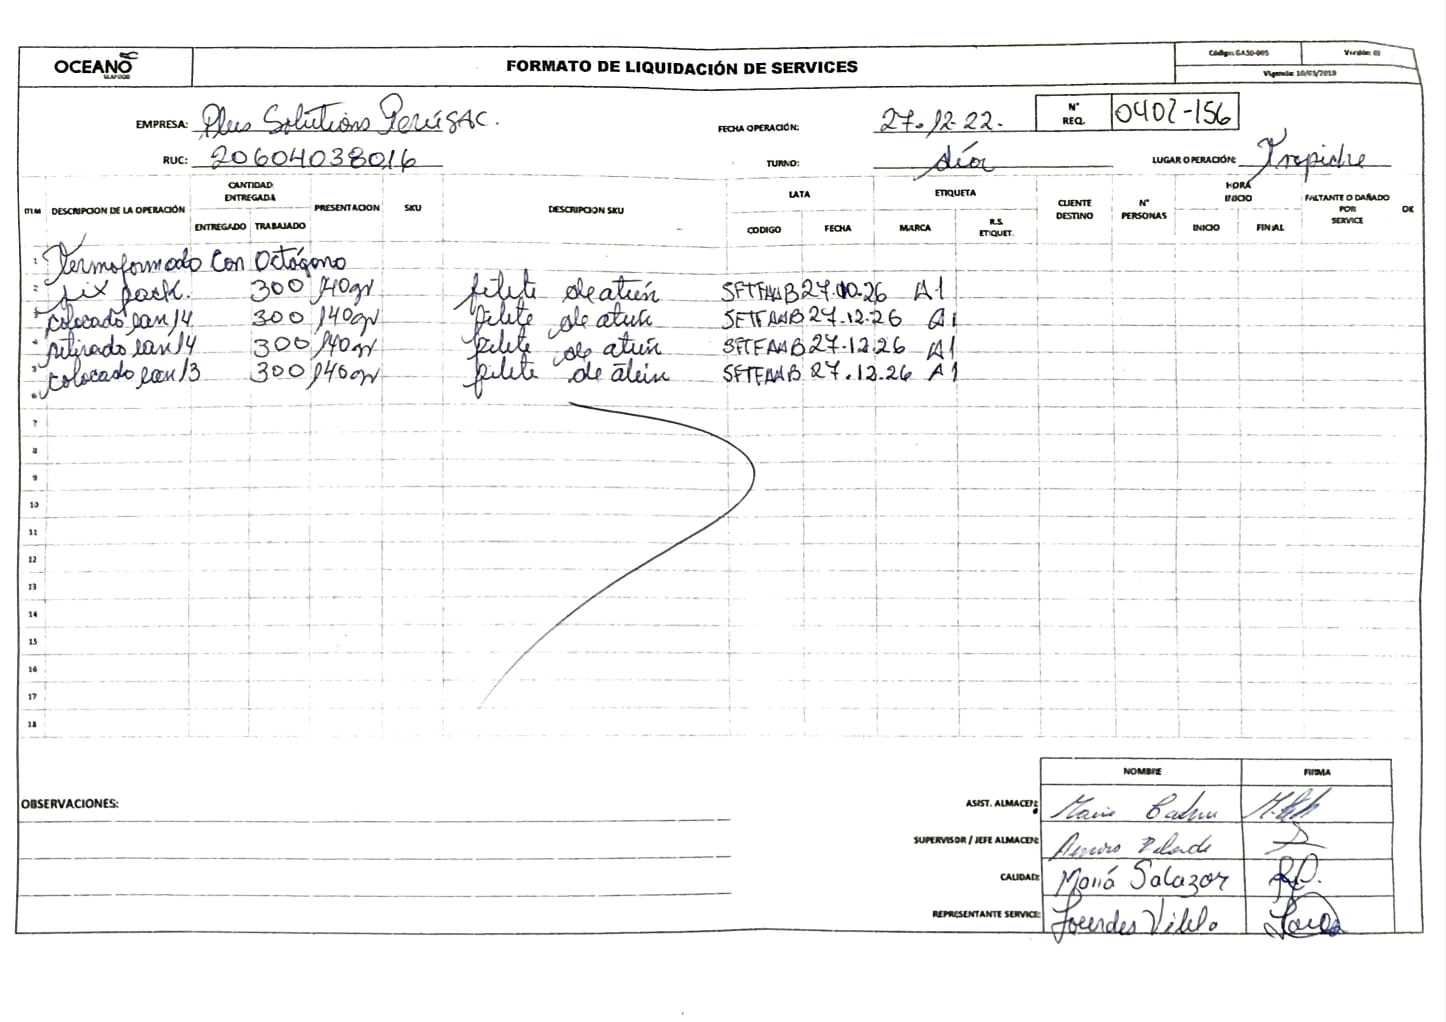 OCEANO
SEAFOOD
FORMATO DE LIQUIDACIÓN DE SERVICES
Código: GA30-005
Versión: 02
Vigencia: 10/03/2019
EMPRESA: Plus Solutions Perú SAC.
FECHA OPERACIÓN: 27.12.22.
N° REQ. 0402-156
RUC: 20604038016
TURNO: día
LUGAR OPERACIÓN: Trapiche
ITEM DESCRIPCION DE LA OPERACIÓN CANTIDAD ENTREGADA PRESENTACION SKU DESCRIPCION SKU LATA ETIQUETA CLIENTE DESTINO N° PERSONAS HORA INICIO FALTANTE O DAÑADO POR SERVICE OK
ENTREGADO TRABAJADO CODIGO FECHA MARCA R.S. ETIQUET. INICIO FINAL
1 Termoformado Con Octógono
2 six pack. 300 140gr filete de atún 27.10.26 A1
3 colocado 14 300 140gr filete de atún 27.12.26 A1
4 retirado 14 300 140gr filete de atún 27.12.26 A1
5 colocado 13 300 140gr filete de atún 27.12.26 A1
6
7
8
9
10
11
12
13
14
15
16
17
18
NOMBRE FIRMA
OBSERVACIONES:
ASIST. ALMACEN:
SUPERVISOR / JEFE ALMACEN:
CALIDAD: María Salazar
REPRESENTANTE SERVICE: Lourdes Vilela